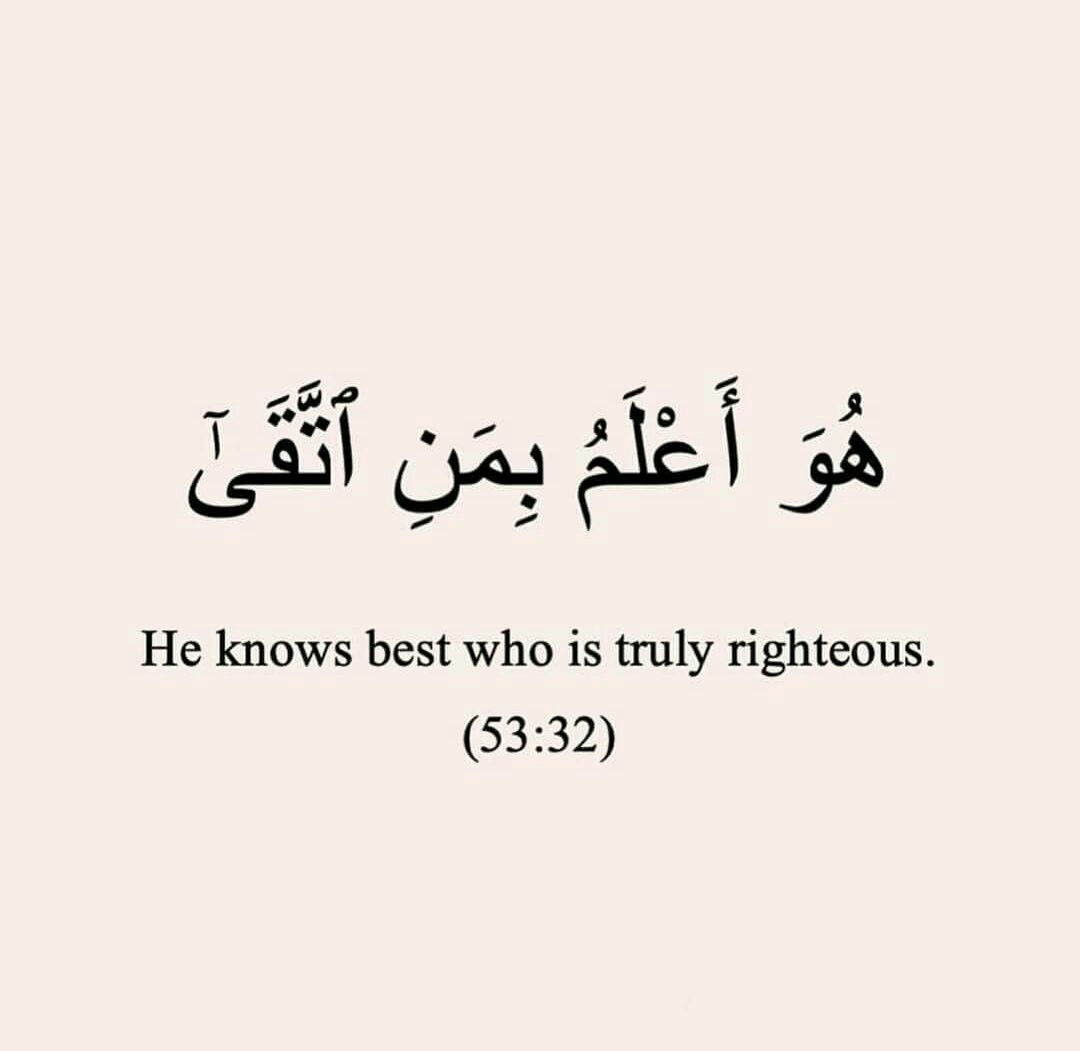 هُوَ أَعْلَمُ بِمَنِ ٱتَّقَىٰٓ
He knows best who is truly righteous.
(53:32)